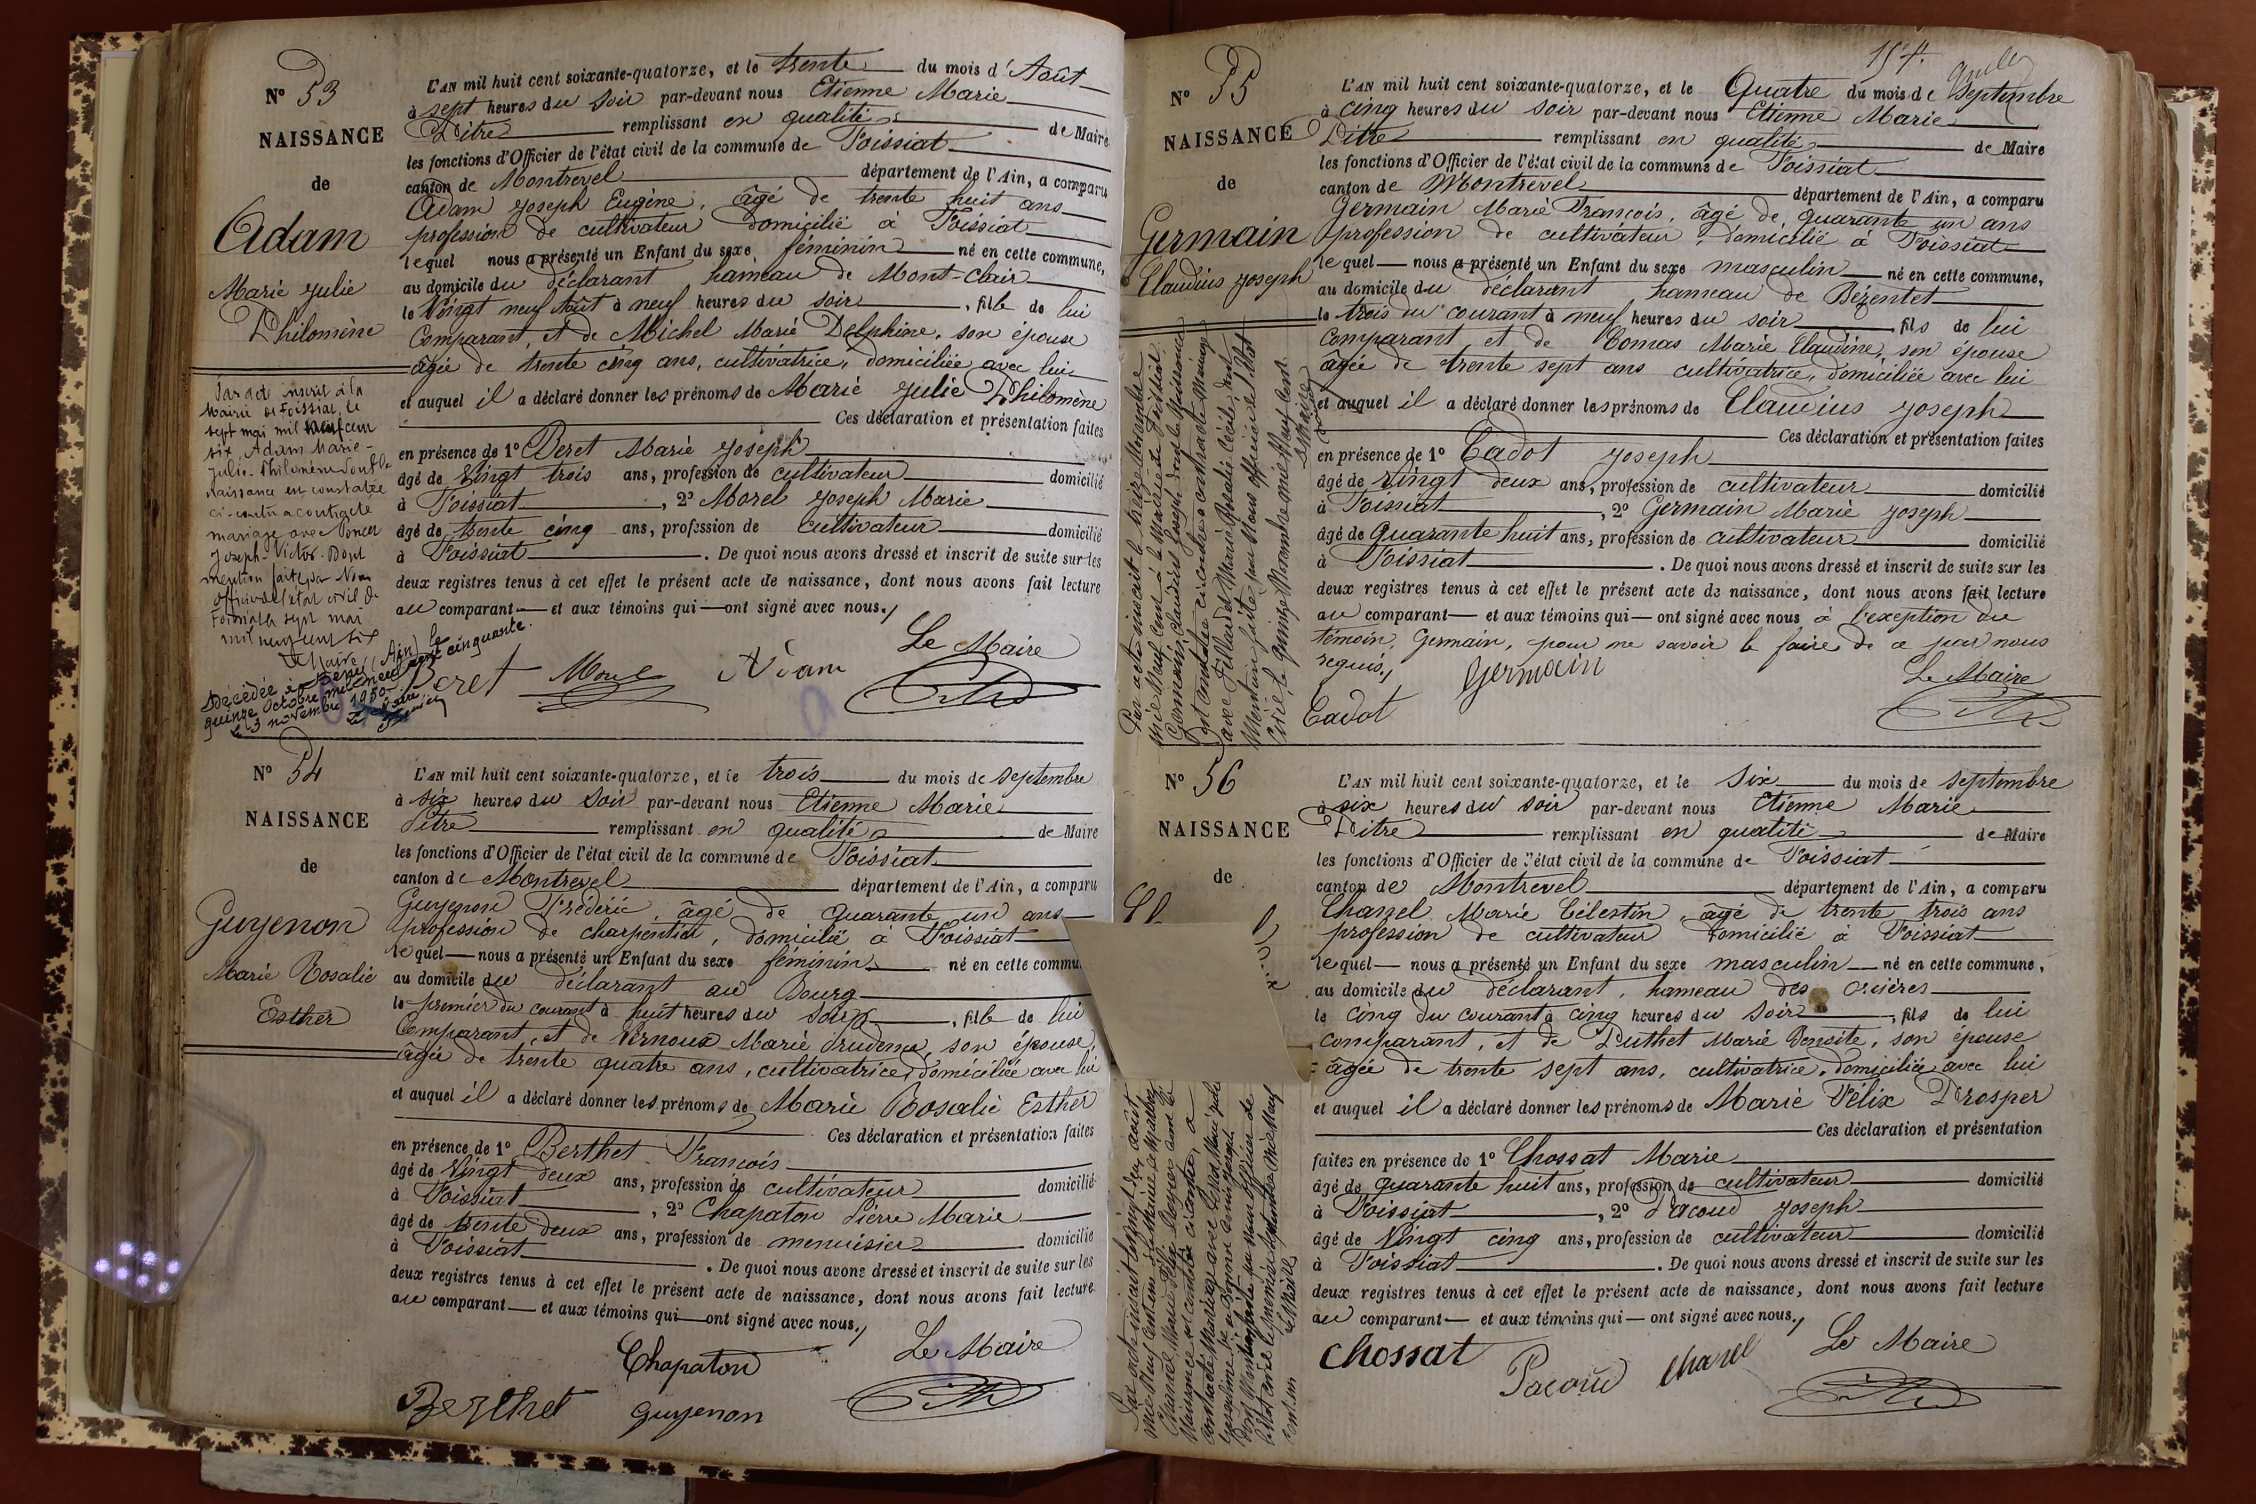 N° 53
NAISSANCE
de
Adam
Marie Julie
Philomène
Par acte inscrit à la
Mairie de Foissiat, le
sept mai mil neuf cent
six, Adam Marie-
Julie-Philomène dont la
naissance est constatée
ci-contre a contracté
mariage avec
Joseph-Victor. Dont
mention faite par Nous
officier de l'état civil de
Foissiat le sept mai
mil neuf cent six
Le Maire,
Décédée à (Ain) le
quinze Octobre mil neuf cent cinquante.
Le 3 novembre 1950
L'AN mil huit cent soixante-quatorze, et le trente du mois d'Août
à sept heures du soir par-devant nous Etienne Marie
Pitre remplissant en qualité de Maire
les fonctions d'Officier de l'état civil de la commune de Foissiat
canton de Montrevel département de l'Ain, a comparu
Adam Joseph Eugène, âgé de trente huit ans
profession de cultivateur domicilié à Foissiat
lequel nous a présenté un Enfant du sexe féminin né en cette commune,
au domicile du déclarant hameau de Mont-Clair
le Vingt neuf Août à neuf heures du soir, fille de lui
Comparant, et de Michel Marie Delphine, son épouse
âgée de trente cinq ans, cultivatrice, domiciliée avec lui
et auquel il a déclaré donner les prénoms de Marie Julie Philomène
Ces déclaration et présentation faites
en présence de 1° Beret Marie Joseph
âgé de Vingt trois ans, profession de cultivateur domicilié
à Foissiat, 2° Morel Joseph Marie
âgé de trente cinq ans, profession de cultivateur domicilié
à Foissiat. De quoi nous avons dressé et inscrit de suite sur les
deux registres tenus à cet effet le présent acte de naissance, dont nous avons fait lecture
au comparant et aux témoins qui ont signé avec nous.
Le Maire
Beret Morel Adam
N° 54
NAISSANCE
de
Guyenon
Marie Rosalie
Esther
L'AN mil huit cent soixante-quatorze, et le trois du mois de septembre
à six heures du soir par-devant nous Etienne Marie
Pitre remplissant en qualité de Maire
les fonctions d'Officier de l'état civil de la commune de Foissiat
canton de Montrevel département de l'Ain, a comparu
Guyenon Frédéric, âgé de quarante un ans
profession de charpentier, domicilié à Foissiat
lequel nous a présenté un Enfant du sexe féminin né en cette commu
au domicile du déclarant au Bourg
le premier du courant à huit heures du soir, fille de lui
Comparant, et de Vernoux Marie Prudence, son épouse,
âgée de trente quatre ans, cultivatrice, domiciliée avec lui
et auquel il a déclaré donner les prénoms de Marie Rosalie Esther
Ces déclaration et présentation faites
en présence de 1° Berthet François
âgé de Vingt deux ans, profession de cultivateur domicilié
à Foissiat, 2° Chapaton Pierre Marie
âgé de trente deux ans, profession de menuisier domicilié
à Foissiat. De quoi nous avons dressé et inscrit de suite sur les
deux registres tenus à cet effet le présent acte de naissance, dont nous avons fait lecture
au comparant et aux témoins qui ont signé avec nous.
Chapaton Le Maire
Berthet guyenon
N° 55
NAISSANCE
de
Germain
Claudius Joseph
Par acte inscrit le treize Novembre
mil neuf cent à la Mairie de Foissiat
Germain, Claudius Joseph dont la Naissance
est constatée ci-contre a contracté Mariage
avec Marie Rosalie Cécile, dont
Mention faite par Nous officier de l'état
civil, le quinze Novembre mil neuf cent.
L'AN mil huit cent soixante-quatorze, et le Quatre du mois de septembre
à cinq heures du soir par-devant nous Etienne Marie
Pitre remplissant en qualité de Maire
les fonctions d'Officier de l'état civil de la commune de Foissiat
canton de Montrevel département de l'Ain, a comparu
Germain Marie François, âgé de quarante un ans
profession de cultivateur, domicilié à Foissiat
lequel nous a présenté un Enfant du sexe masculin né en cette commune,
au domicile du déclarant hameau de Bézentet
le trois du courant à neuf heures du soir, fils de lui
comparant et de Comas Marie Claudine, son épouse
âgée de trente sept ans cultivatrice, domiciliée avec lui
et auquel il a déclaré donner les prénoms de Claudius Joseph
Ces déclaration et présentation faites
en présence de 1° Cadot Joseph
âgé de vingt deux ans, profession de cultivateur domicilié
à Foissiat, 2° Germain Marie Joseph
âgé de Quarante huit ans, profession de cultivateur domicilié
à Foissiat. De quoi nous avons dressé et inscrit de suite sur les
deux registres tenus à cet effet le présent acte de naissance, dont nous avons fait lecture
au comparant et aux témoins qui ont signé avec nous à l'exception du
témoin Germain, pour ne savoir le faire de ce par nous
requis.
Germain Le Maire
Cadot
N° 56
NAISSANCE
de
L'AN mil huit cent soixante-quatorze, et le Six du mois de septembre
à six heures du soir par-devant nous Etienne Marie
Pitre remplissant en qualité de Maire
les fonctions d'Officier de l'état civil de la commune de Foissiat
canton de Montrevel département de l'Ain, a comparu
Chanel Marie Célestin, âgé de trente trois ans
profession de cultivateur domicilié à Foissiat
lequel nous a présenté un Enfant du sexe masculin né en cette commune,
au domicile du déclarant, hameau des
le cinq du courant à cinq heures du soir, fils de lui
comparant, et de Puthet Marie Benoite, son épouse
âgée de trente sept ans, cultivatrice, domiciliée avec lui
et auquel il a déclaré donner les prénoms de Marie Félix Prosper
Ces déclaration et présentation
faites en présence de 1° Chossat Marie
âgé de quarante huit ans, profession de cultivateur domicilié
à Foissiat, 2° Pacoud Joseph
âgé de Vingt cinq ans, profession de cultivateur domicilié
à Foissiat. De quoi nous avons dressé et inscrit de suite sur les
deux registres tenus à cet effet le présent acte de naissance, dont nous avons fait lecture
au comparant et aux témoins qui ont signé avec nous.
Le Maire
Chossat Pacoud Chanel